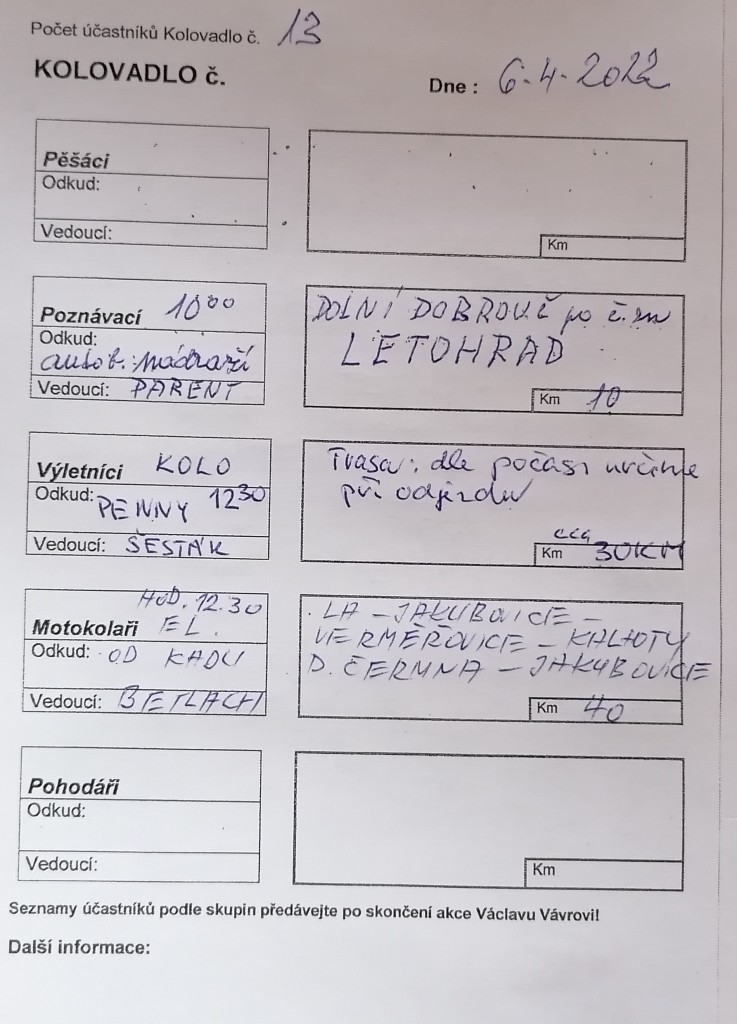 Počet účastníků Kolovadlo č. 13
KOLOVADLO č.
Dne : 6.4.2022
Pěšáci
Odkud:
Vedoucí:
Km
Poznávací 10⁰⁰
Odkud:
autob. nádraží
Vedoucí: PARENT
DOLNÍ DOBROUČ po č. zn
LETOHRAD
Km 10
Výletníci KOLO
Odkud: PENNY 12³⁰
Vedoucí: ŠESTÁK
Trasa: dle počasí určíme
při odjezdu
cca
Km 30KM
HOD. 12.30
Motokolaři EL.
Odkud: OD KADU
Vedoucí: BETLACH
LA - JAKUBOVICE -
VERMĚŘOVICE - KALHOTY
D. ČERMNA - JAKUBOVICE
Km 40
Pohodáři
Odkud:
Vedoucí:
Km
Seznamy účastníků podle skupin předávejte po skončení akce Václavu Vávrovi!
Další informace: